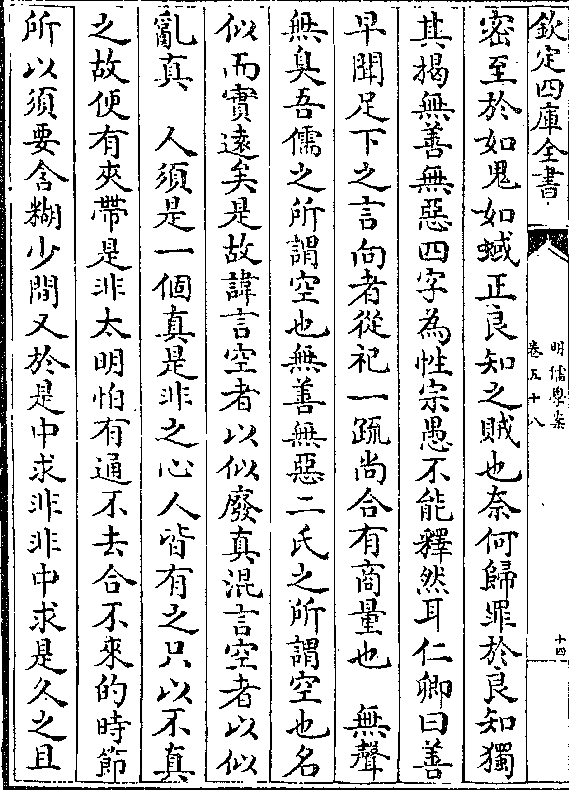 欽定四庫全書
明儒學案
卷五十八
十四
密至於如鬼如蜮正良知之賊也奈何歸罪於良知獨
其揭無善無惡四字為性宗愚不能釋然耳仁卿曰善
早聞足下之言向者從祀一疏尚合有商量也　無聲
無臭吾儒之所謂空也無善無惡二氏之所謂空也名
似而實遠矣是故諱言空者以似廢真混言空者以似
亂真　人須是一個真是非之心人皆有之只以不真
之故便有夾帶是非太明怕有通不去合不來的時節
所以須要含糊少間又於是中求非非中求是久之且